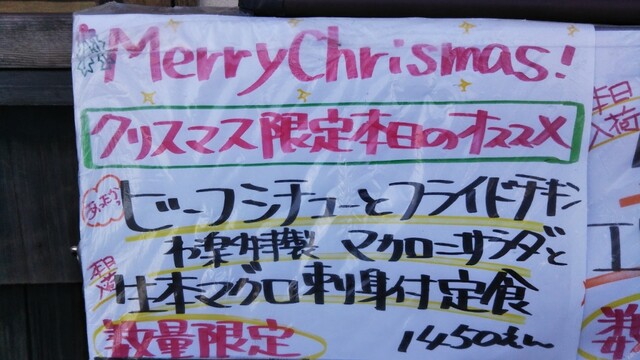 MerryChrismas!
クリスマス限定本日のオススメ
ビーフシチューとフライドチキン
わ楽特製 マカロニサラダと
本日
生本マグロ刺身付定食
数量限定
1450えん
本日
入荷